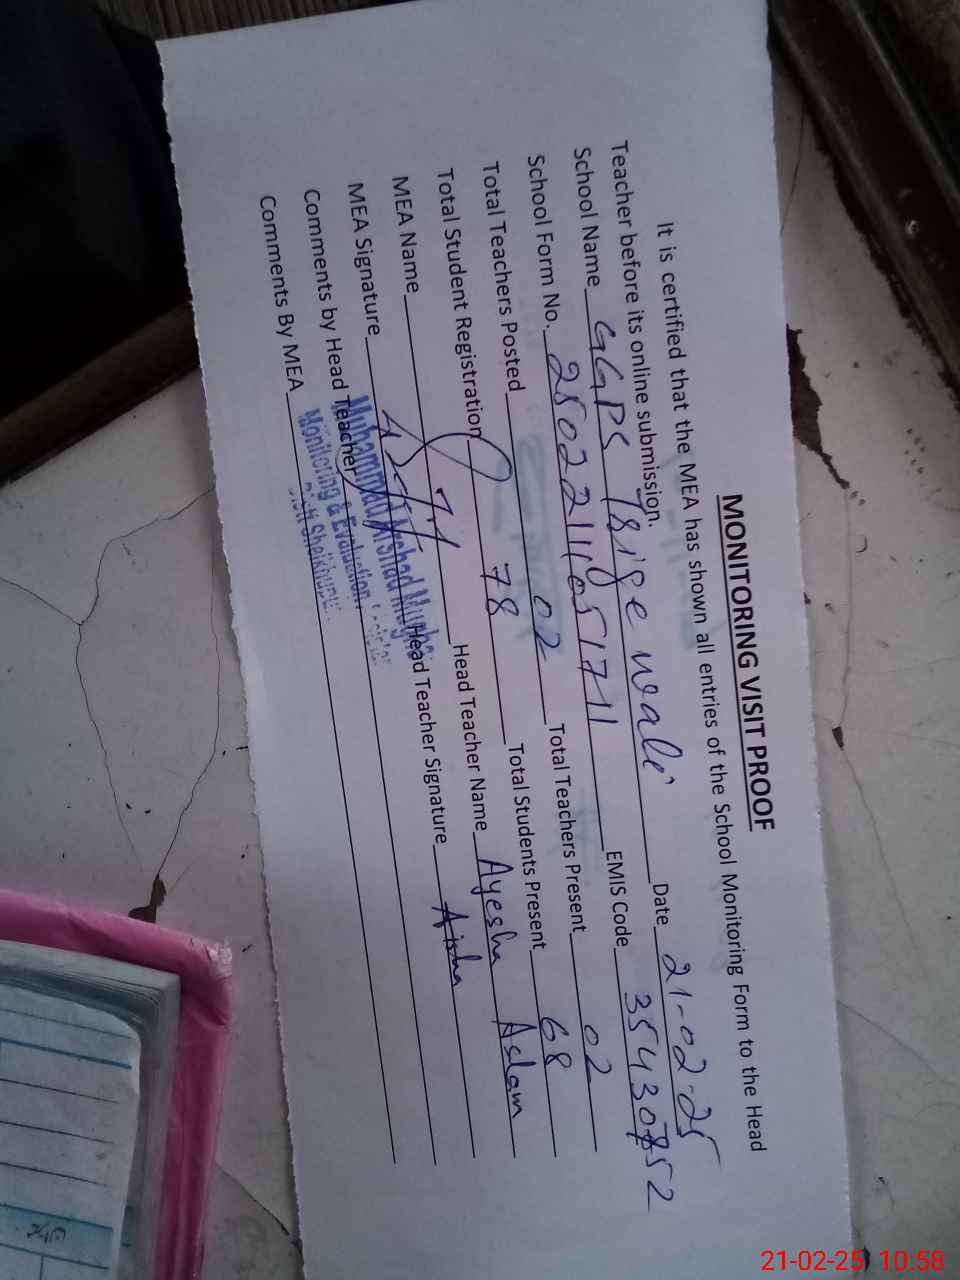 MONITORING VISIT PROOF
It is certified that the MEA has shown all entries of the School Monitoring Form to the Head
Teacher before its online submission.
School Name GGPS wali Date 21-02-25
School Form No. EMIS Code
Total Teachers Posted 02 Total Teachers Present 02
Total Student Registration 78 Total Students Present 68
MEA Name Head Teacher Name Ayesha Aslam
MEA Signature Head Teacher Signature Aisha
Comments by Head Teacher
Comments By MEA
Muhammad Arshad Mughal
Monitoring & Evaluation
Distt Sheikhupura
21-02-25 10:58